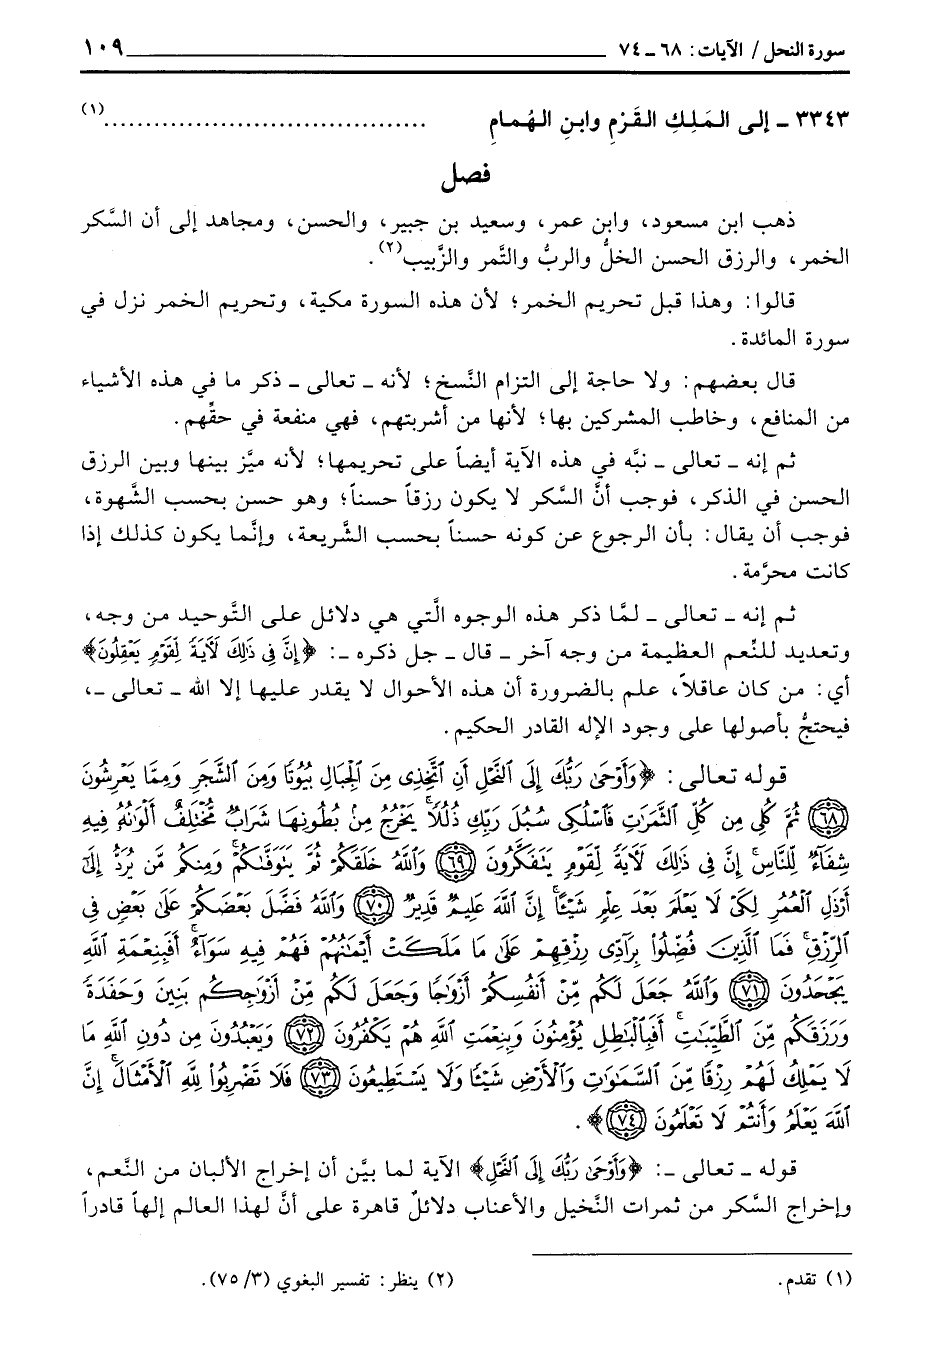 سورة النحل / الآيات: ٦٨ ـ ٧٤ ١٠٩
٣٣٤٣ ـ إلى المَلِكِ القَرْمِ وابنِ الهُمامِ .......................................(١)
فصل
ذهب ابن مسعود، وابن عمر، وسعيد بن جبير، والحسن، ومجاهد إلى أن السَّكر
الخمر، والرزق الحسن الخلُّ والربُّ والتَّمر والزَّبيب(٢).
قالوا: وهذا قبل تحريم الخمر؛ لأن هذه السورة مكية، وتحريم الخمر نزل في
سورة المائدة.
قال بعضهم: ولا حاجة إلى التزام النَّسخ؛ لأنه ـ تعالى ـ ذكر ما في هذه الأشياء
من المنافع، وخاطب المشركين بها؛ لأنها من أشربتهم، فهي منفعة في حقِّهم.
ثم إنه ـ تعالى ـ نبَّه في هذه الآية أيضاً على تحريمها؛ لأنه ميَّز بينها وبين الرزق
الحسن في الذكر، فوجب أنَّ السَّكر لا يكون رزقاً حسناً؛ وهو حسن بحسب الشَّهوة،
فوجب أن يقال: بأن الرجوع عن كونه حسناً بحسب الشَّريعة، وإنَّما يكون كذلك إذا
كانت محرَّمة.
ثم إنه ـ تعالى ـ لمَّا ذكر هذه الوجوه الَّتي هي دلائل على التَّوحيد من وجه،
وتعديد للنِّعم العظيمة من وجه آخر ـ قال ـ جل ذكره ـ: ﴿إِنَّ فِي ذَٰلِكَ لَآيَةً لِّقَوْمٍ يَعْقِلُونَ﴾
أي: من كان عاقلاً، علم بالضرورة أن هذه الأحوال لا يقدر عليها إلا الله ـ تعالى ـ،
فيحتجُّ بأصولها على وجود الإله القادر الحكيم.
قوله تعالى: ﴿وَأَوْحَىٰ رَبُّكَ إِلَى ٱلنَّحْلِ أَنِ ٱتَّخِذِى مِنَ ٱلْجِبَالِ بُيُوتًا وَمِنَ ٱلشَّجَرِ وَمِمَّا يَعْرِشُونَ
(٦٨) ثُمَّ كُلِى مِن كُلِّ ٱلثَّمَرَٰتِ فَٱسْلُكِى سُبُلَ رَبِّكِ ذُلُلًا ۚ يَخْرُجُ مِنۢ بُطُونِهَا شَرَابٌ مُّخْتَلِفٌ أَلْوَٰنُهُۥ فِيهِ
شِفَآءٌ لِّلنَّاسِ ۗ إِنَّ فِى ذَٰلِكَ لَآيَةً لِّقَوْمٍ يَتَفَكَّرُونَ (٦٩) وَٱللَّهُ خَلَقَكُمْ ثُمَّ يَتَوَفَّىٰكُمْ ۚ وَمِنكُم مَّن يُرَدُّ إِلَىٰٓ
أَرْذَلِ ٱلْعُمُرِ لِكَىْ لَا يَعْلَمَ بَعْدَ عِلْمٍ شَيْـًٔا ۚ إِنَّ ٱللَّهَ عَلِيمٌ قَدِيرٌ (٧٠) وَٱللَّهُ فَضَّلَ بَعْضَكُمْ عَلَىٰ بَعْضٍ فِى
ٱلرِّزْقِ ۚ فَمَا ٱلَّذِينَ فُضِّلُوا۟ بِرَآدِّى رِزْقِهِمْ عَلَىٰ مَا مَلَكَتْ أَيْمَٰنُهُمْ فَهُمْ فِيهِ سَوَآءٌ ۚ أَفَبِنِعْمَةِ ٱللَّهِ
يَجْحَدُونَ (٧١) وَٱللَّهُ جَعَلَ لَكُم مِّنْ أَنفُسِكُمْ أَزْوَٰجًا وَجَعَلَ لَكُم مِّنْ أَزْوَٰجِكُم بَنِينَ وَحَفَدَةً
وَرَزَقَكُم مِّنَ ٱلطَّيِّبَٰتِ ۚ أَفَبِٱلْبَٰطِلِ يُؤْمِنُونَ وَبِنِعْمَتِ ٱللَّهِ هُمْ يَكْفُرُونَ (٧٢) وَيَعْبُدُونَ مِن دُونِ ٱللَّهِ مَا
لَا يَمْلِكُ لَهُمْ رِزْقًا مِّنَ ٱلسَّمَٰوَٰتِ وَٱلْأَرْضِ شَيْـًٔا وَلَا يَسْتَطِيعُونَ (٧٣) فَلَا تَضْرِبُوا۟ لِلَّهِ ٱلْأَمْثَالَ ۚ إِنَّ
ٱللَّهَ يَعْلَمُ وَأَنتُمْ لَا تَعْلَمُونَ (٧٤)﴾.
قوله ـ تعالى ـ: ﴿وَأَوْحَىٰ رَبُّكَ إِلَى ٱلنَّحْلِ﴾ الآية لما بيَّن أن إخراج الألبان من النَّعم،
وإخراج السَّكر من ثمرات النَّخيل والأعناب دلائلٌ قاهرة على أنَّ لهذا العالم إلهاً قادراً
(١) تقدم.
(٢) ينظر: تفسير البغوي (٣/ ٧٥).